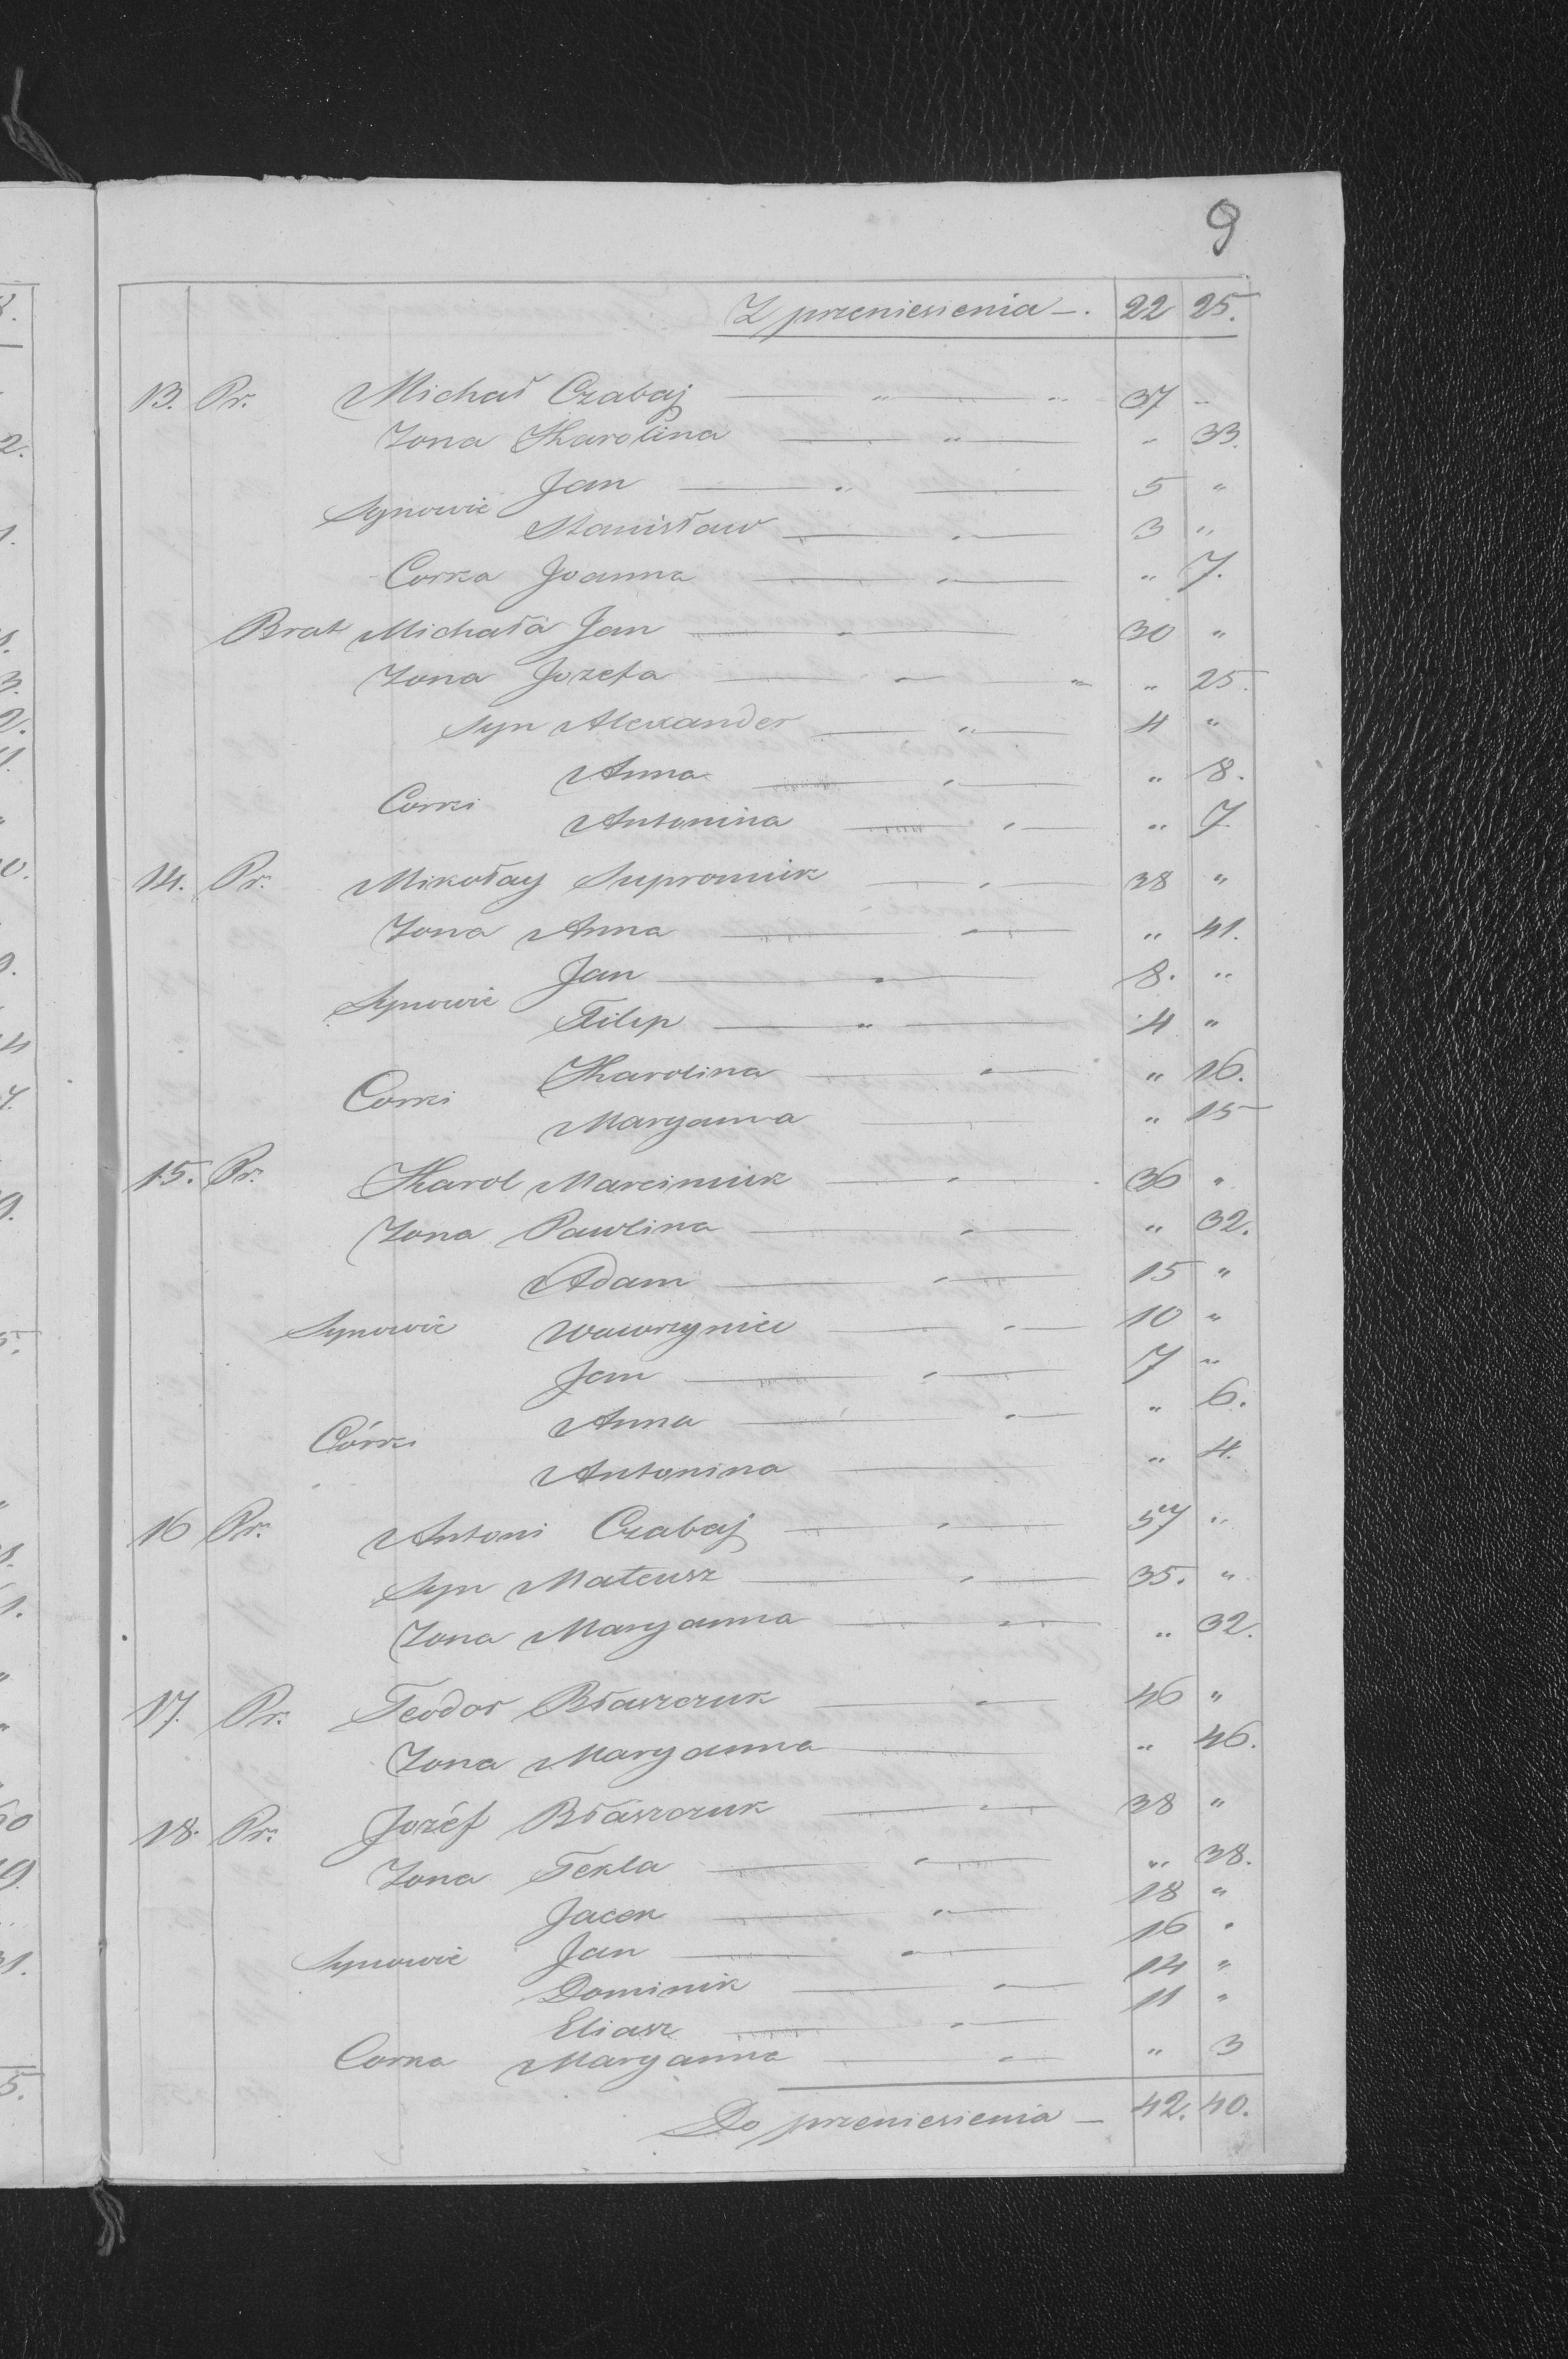 9
Z przeniesienia —. 22 25.
13. Pr. Michał Czabaj — " — " 37 "
Zona Karolina — " — " 33.
Jan — " — 5 "
Synowie
Stanisław — " — 3 "
Corka Joanna — " — " 7.
Brat Michała Jan — " — 30 "
Zona Jozefa — " — " " 25.
Syn Alexander — " — 4 "
Anna — " — " 8.
Corki
Antonina — " — " 7
14. Pr. Mikołay Supromiuk — " — 38 "
Zona Anna — " — " 41.
Jan — " — 8. "
Synowie
Filip — " — 4 "
Karolina — " — " 16.
Corki
Maryanna — " 15
15. Pr. Karol Marciniuk — " — 36 "
Zona Pawlina — " — " 32.
Adam — " — 15 "
Synowie Wawrzyniec — " — 10 "
Jan — " — 7 "
Anna — " — " 6.
Córki
Antonina — " 4.
16 Pr. Antoni Czabaj — " — 57 "
Syn Mateusz — " — 35. "
Zona Maryanna — " — " 32.
17. Pr. Teodor Błaszczuk — " — 46 "
Zona Maryanna — " 46.
18. Pr. Jozéf Błaszczuk — " — 38 "
Zona Tekla — " — " 38.
Jacek — " — 18 "
Synowie Jan — " — 16 "
Dominik — " — 14 "
Eliasz — " — 11 "
Corka Maryanna — " — " 3
Do przeniesienia — 42. 40.